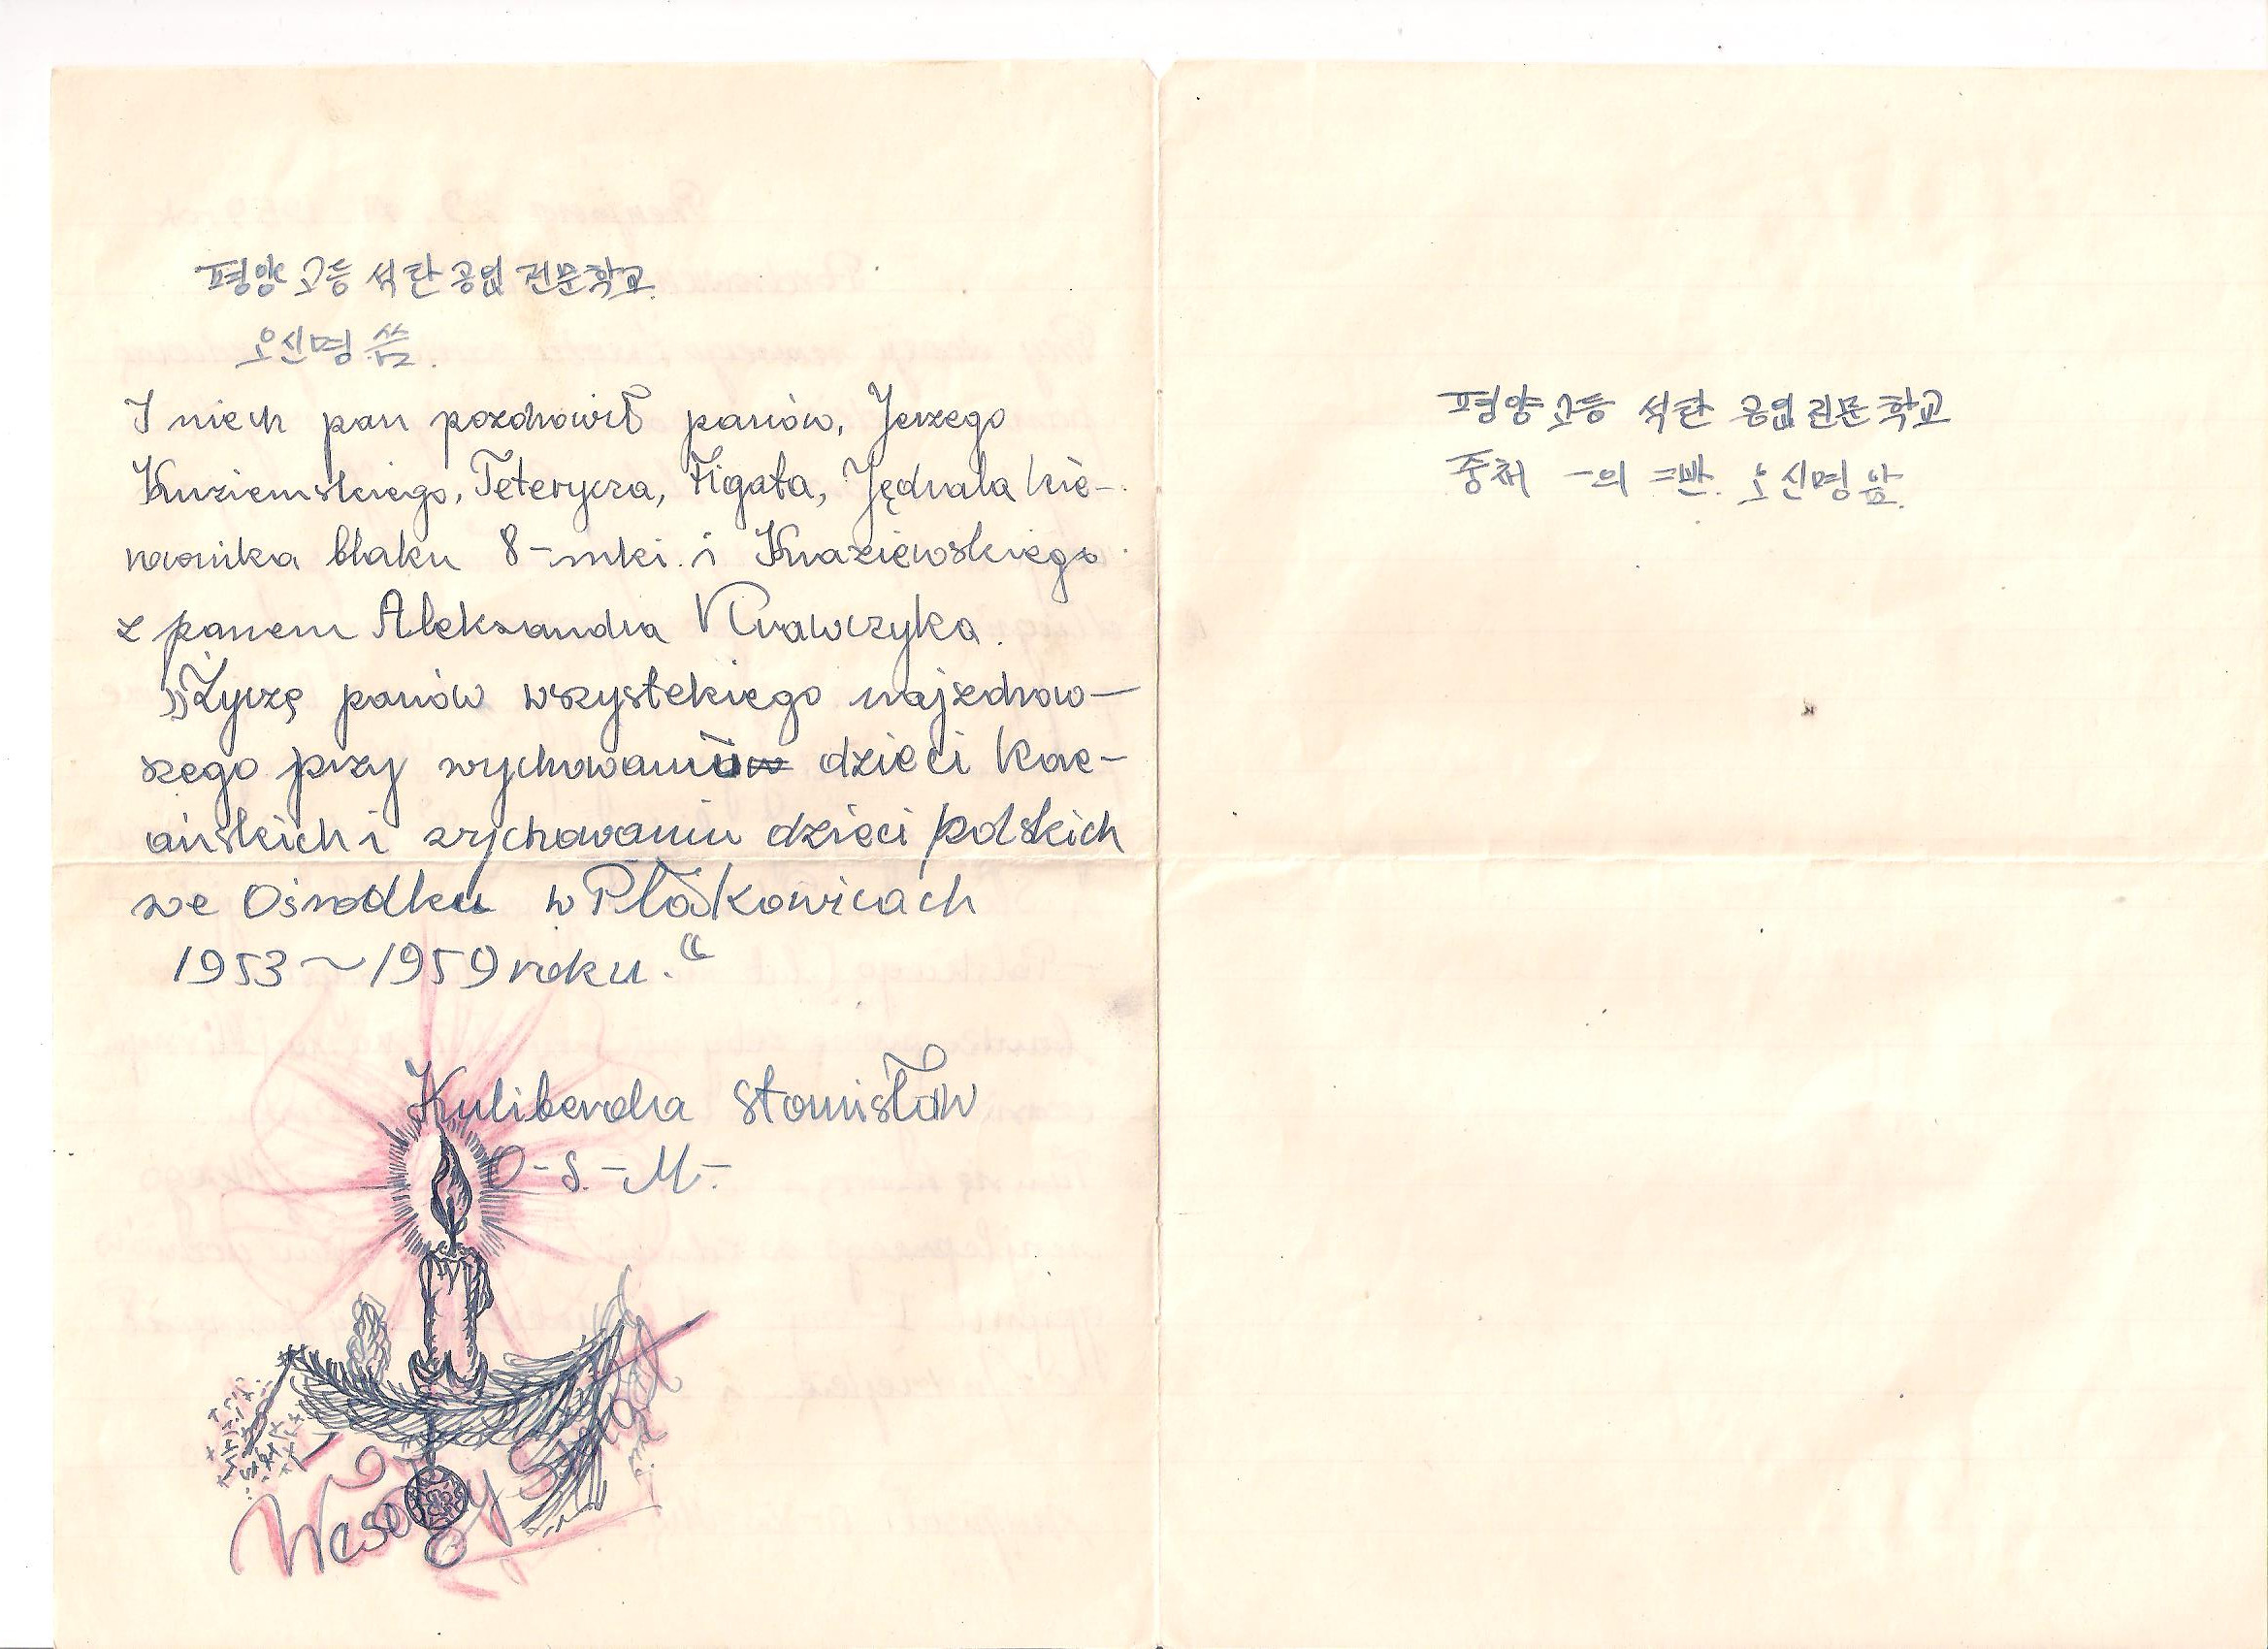 평양 고등 석탄 공업 전문학교
오신명 씀.
I niech pan pozdrowił panów, Jerzego
Kuziemskiego, Teterycza, Figata, Jędrala kie-
rownika blaku 8-mki i Knaziewskiego
z panem Aleksandra Krawczyka.
„Życzę panów wszystekiego najzdrow-
szego przy wychowaniu dzieci kore-
ańskich i wychowaniu dzieci polskich
we Ośrodku w Płakowicach
1953~1959 roku."
Kuliberda Stanisław
O-S.-M.-
Wesoły
평양 고등 석탄 공업 전문 학교
중처 一의 二반. 오신명 앞.